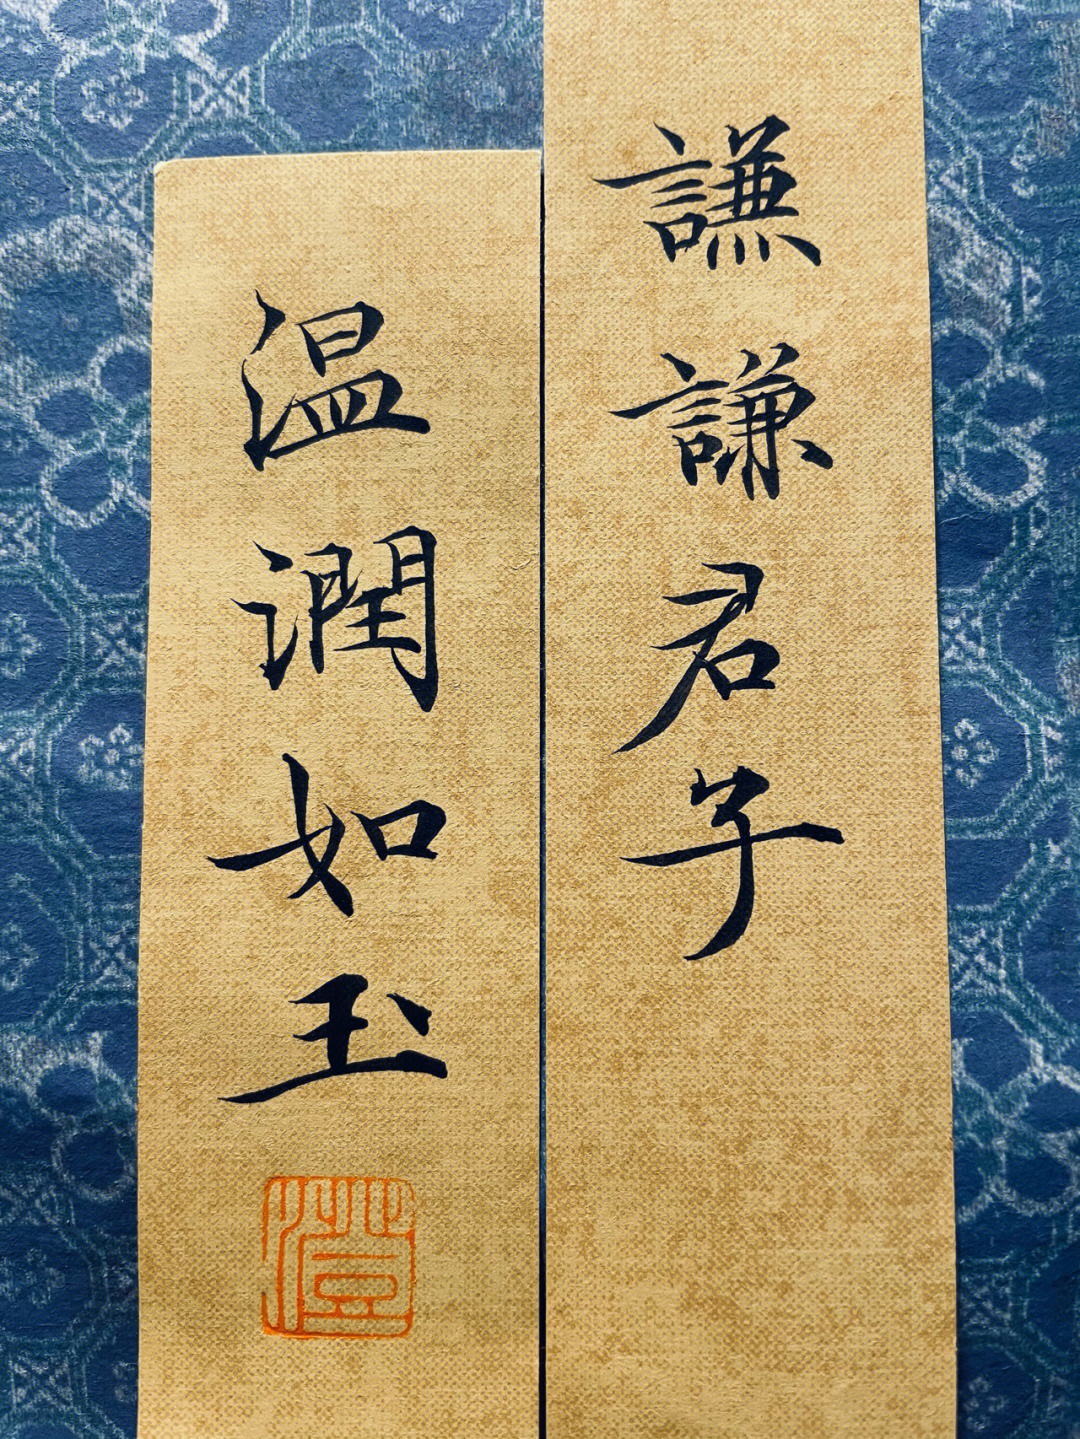 謙謙君子
温潤如玉
澄